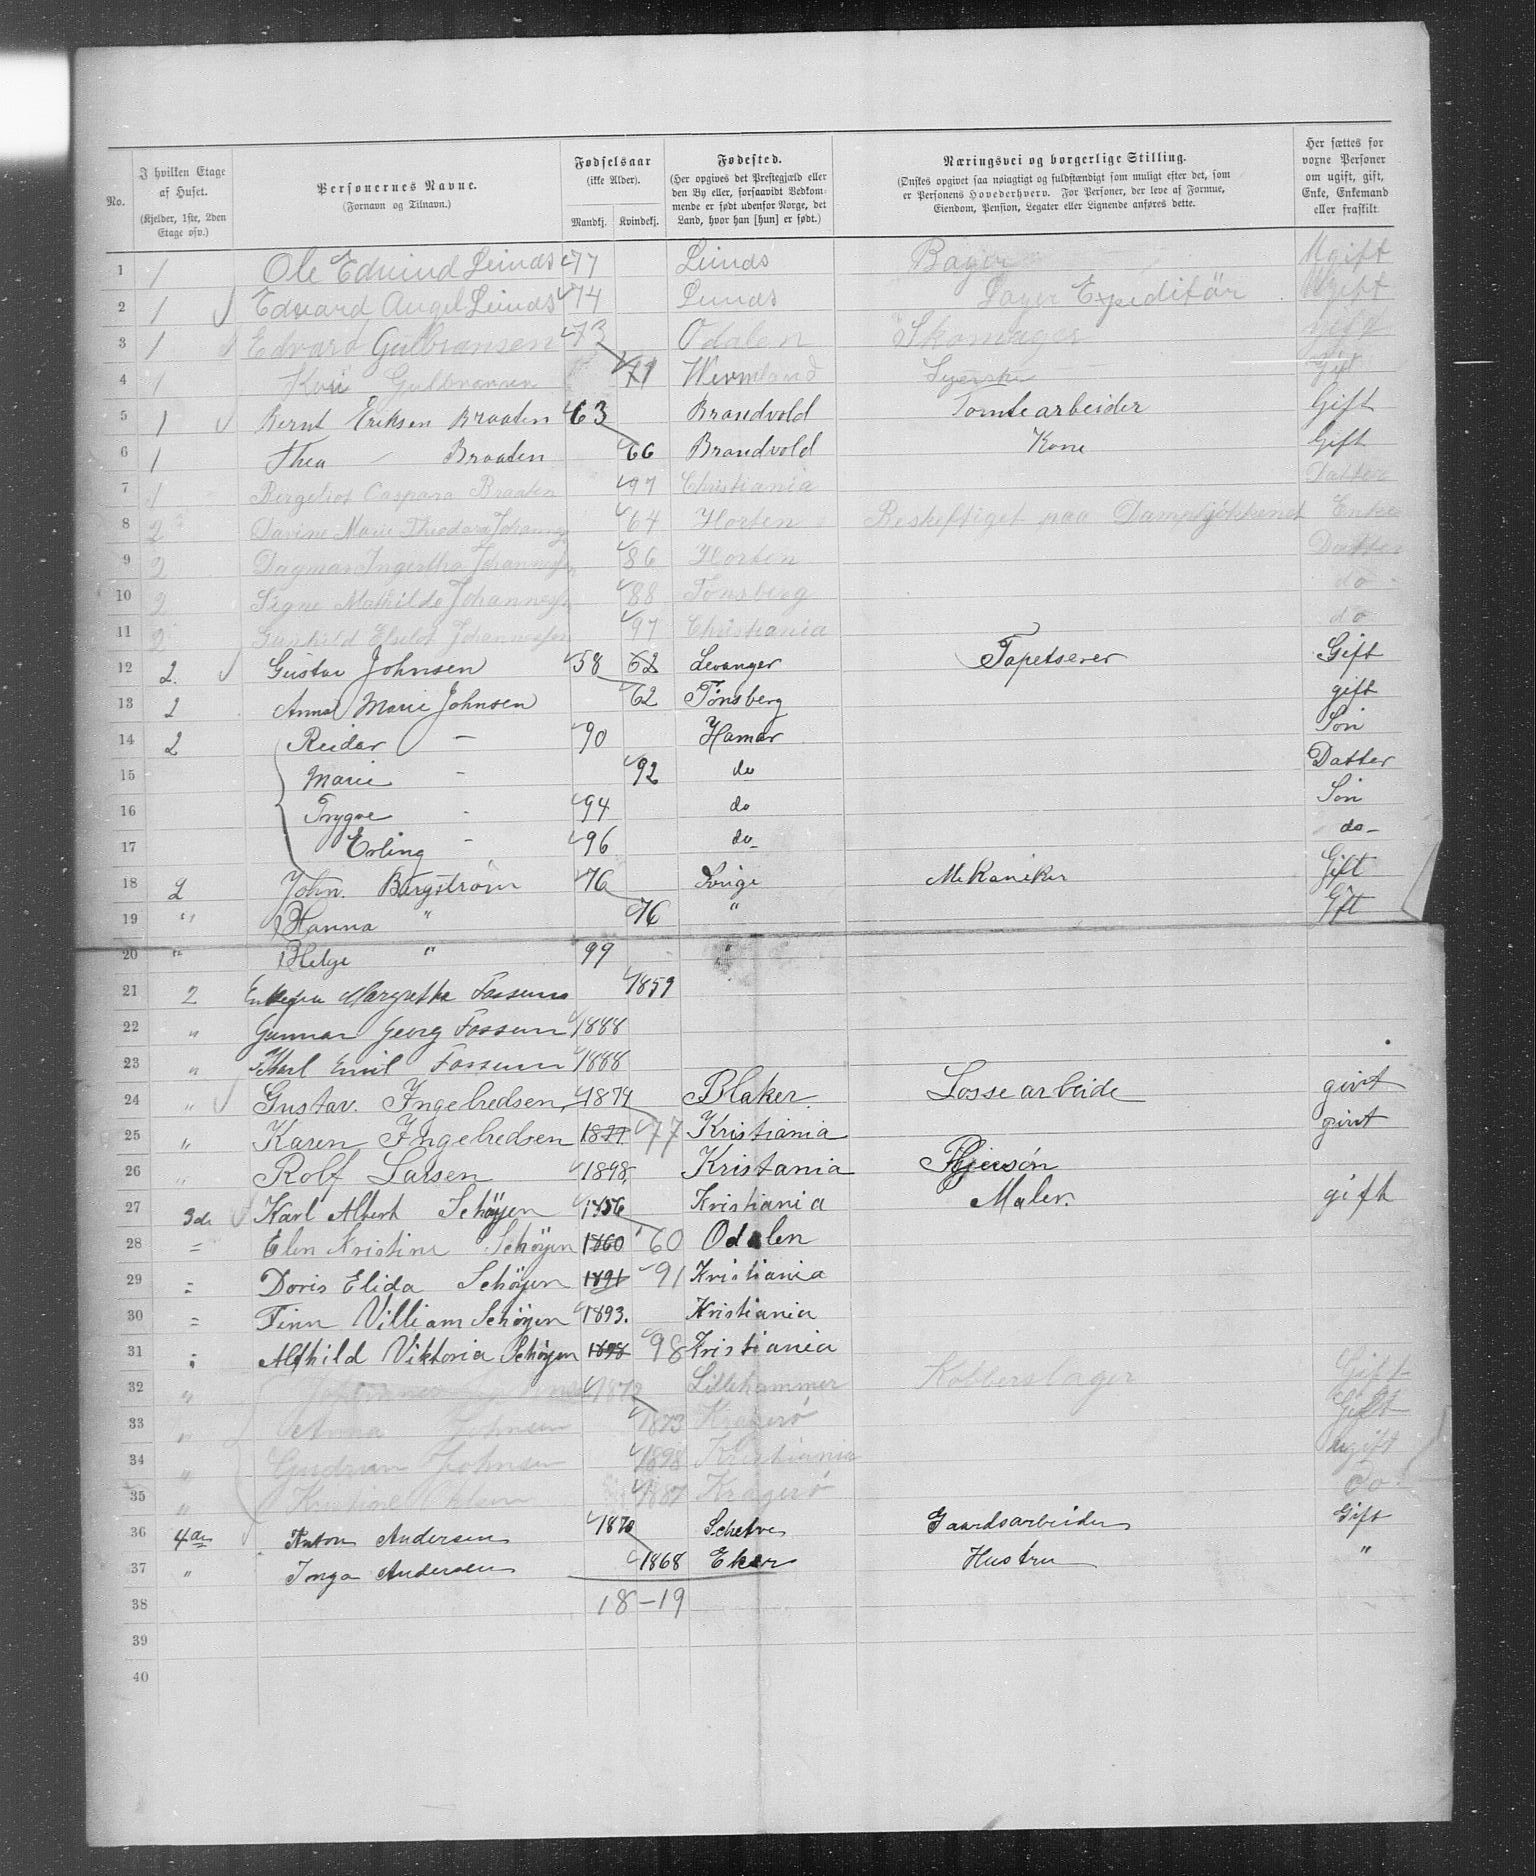 No.
I hvilken Etage af Huset. (Kjelder, 1ste, 2den Etage osv.)
Personernes Navne. (Fornavn og Tilnavn.)
Fødselsaar (ikke Alder). Mandkj. Kvindekj.
Fødested. (Her opgives det Prestegjæld eller den By eller, forsaavidt Vedkommende er født udenfor Norge, det Land, hvor han [hun] er født.)
Næringsvei og borgerlige Stilling. (Ønskes opgivet saa nøiagtigt og fuldstændigt som muligt efter det, som er Personens Hovederhverv. For Personer, der leve af Formue, Eiendom, Pension, Legater eller Lignende anføres dette.
Her sættes for voxne Personer om ugift, gift, Enke, Enkemand eller fraskilt.
1 1 Ole Edvind Leinds 77 Leinds Ugift
2 1 Edvard Angel 74 Lager Expeditør Ugift
3 1 Edvard Gulbransen 73 Odalen Skomager Gift
4 1 Kari Gulbransen 71 Wermland Syerske Gift
5 1 Bernt Eriksen Braaten 63 Brandvold Tomtearbeider Gift
6 1 Thea Braaten 66 Brandvold Kone Gift
7 1 Bergeliot Caspara Braaten 97 Christiania Datter
8 2 Marie Theodora 64 Horten Beskeftiget paa Dampkjøkkenet Enke
9 2 Dagmar Ingertha Johannessen 86 Horten Datter
10 2 Signe Mathilde Johannessen 88 Tønsberg do
11 2 Johannessen 97 Christiania do
12 2. Gustav Johnsen 58 62 Levanger Tapetserer Gift
13 2 Anna Marie Johnsen 62 Tønsberg gift
14 2 Reidar — 90 Hamar Søn
15 Marie - 92 do Datter
16 Trygve - 94 do Søn
17 Erling - 96 do- do-
18 2 John. Bergstrøm 76 Sverige Mekaniker Gift
19 " Hanna " 76 " Gift
20 " Helge " 99 "
21 2 Enkefru Margrethe Fossum 1859
22 " Gunnar Georg Fossum 1888
23 " Karl Emil Fossum 1888
24 " Gustav. Ingebredsen 1874 Blaker. Lossearbeide givt
25 " Karen Ingebredsen 1877 77 Kristiania givt
26 " Rolf Larsen 1898. Kristania Plejesøn
27 3de Karl Albert Schøyen 1856 Kristiania Maler. gift
28 = Elen Kristine Schøyen 1860 60 Odalen
29 = Doris Elida Schøyen 1891 91 Kristiania
30 = Finn Villiam Schøyen 1893. Kristiania
31 = Alfhild Viktoria Schøyen 1898 98 Kristiania
32 " 1872 Lillehammer Kobberslager Gift
33 " Anna Johnsen 1873 Kragerø Gift
34 " Gudrun Johnsen 1898 Kristiania ugift
35 " Kristine Olsen 1887 Kragerø Do
36 4de Anton Andersen 1870 Gaardsarbeider Gift
37 " Inga Andersen 1868 Eker Hustru "
38 18-19
39
40